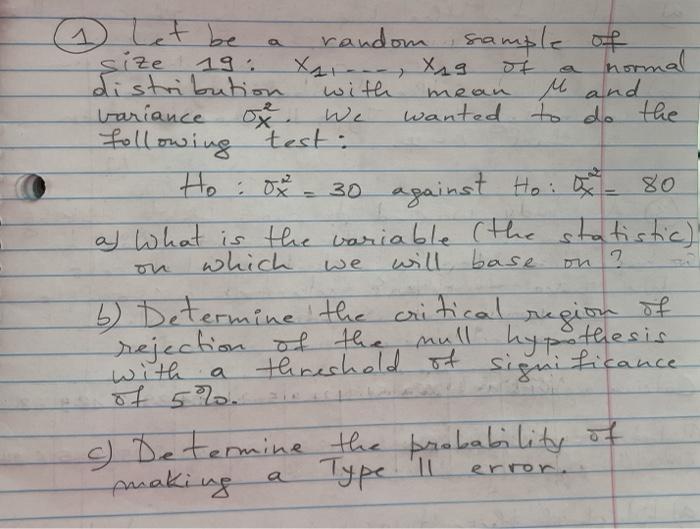 1 Let be a random sample of
size 19: X1, ---, X19 of a normal
distribution with mean μ and
variance σx². We wanted to do the
following test:
Ho : σx² = 30 against Ho: σx² = 80
a) What is the variable (the statistic)
on which we will base on ?
b) Determine the critical region of
rejection of the null hypothesis
with a threshold of significance
of 5%.
c) Determine the probability of
making a Type II error.